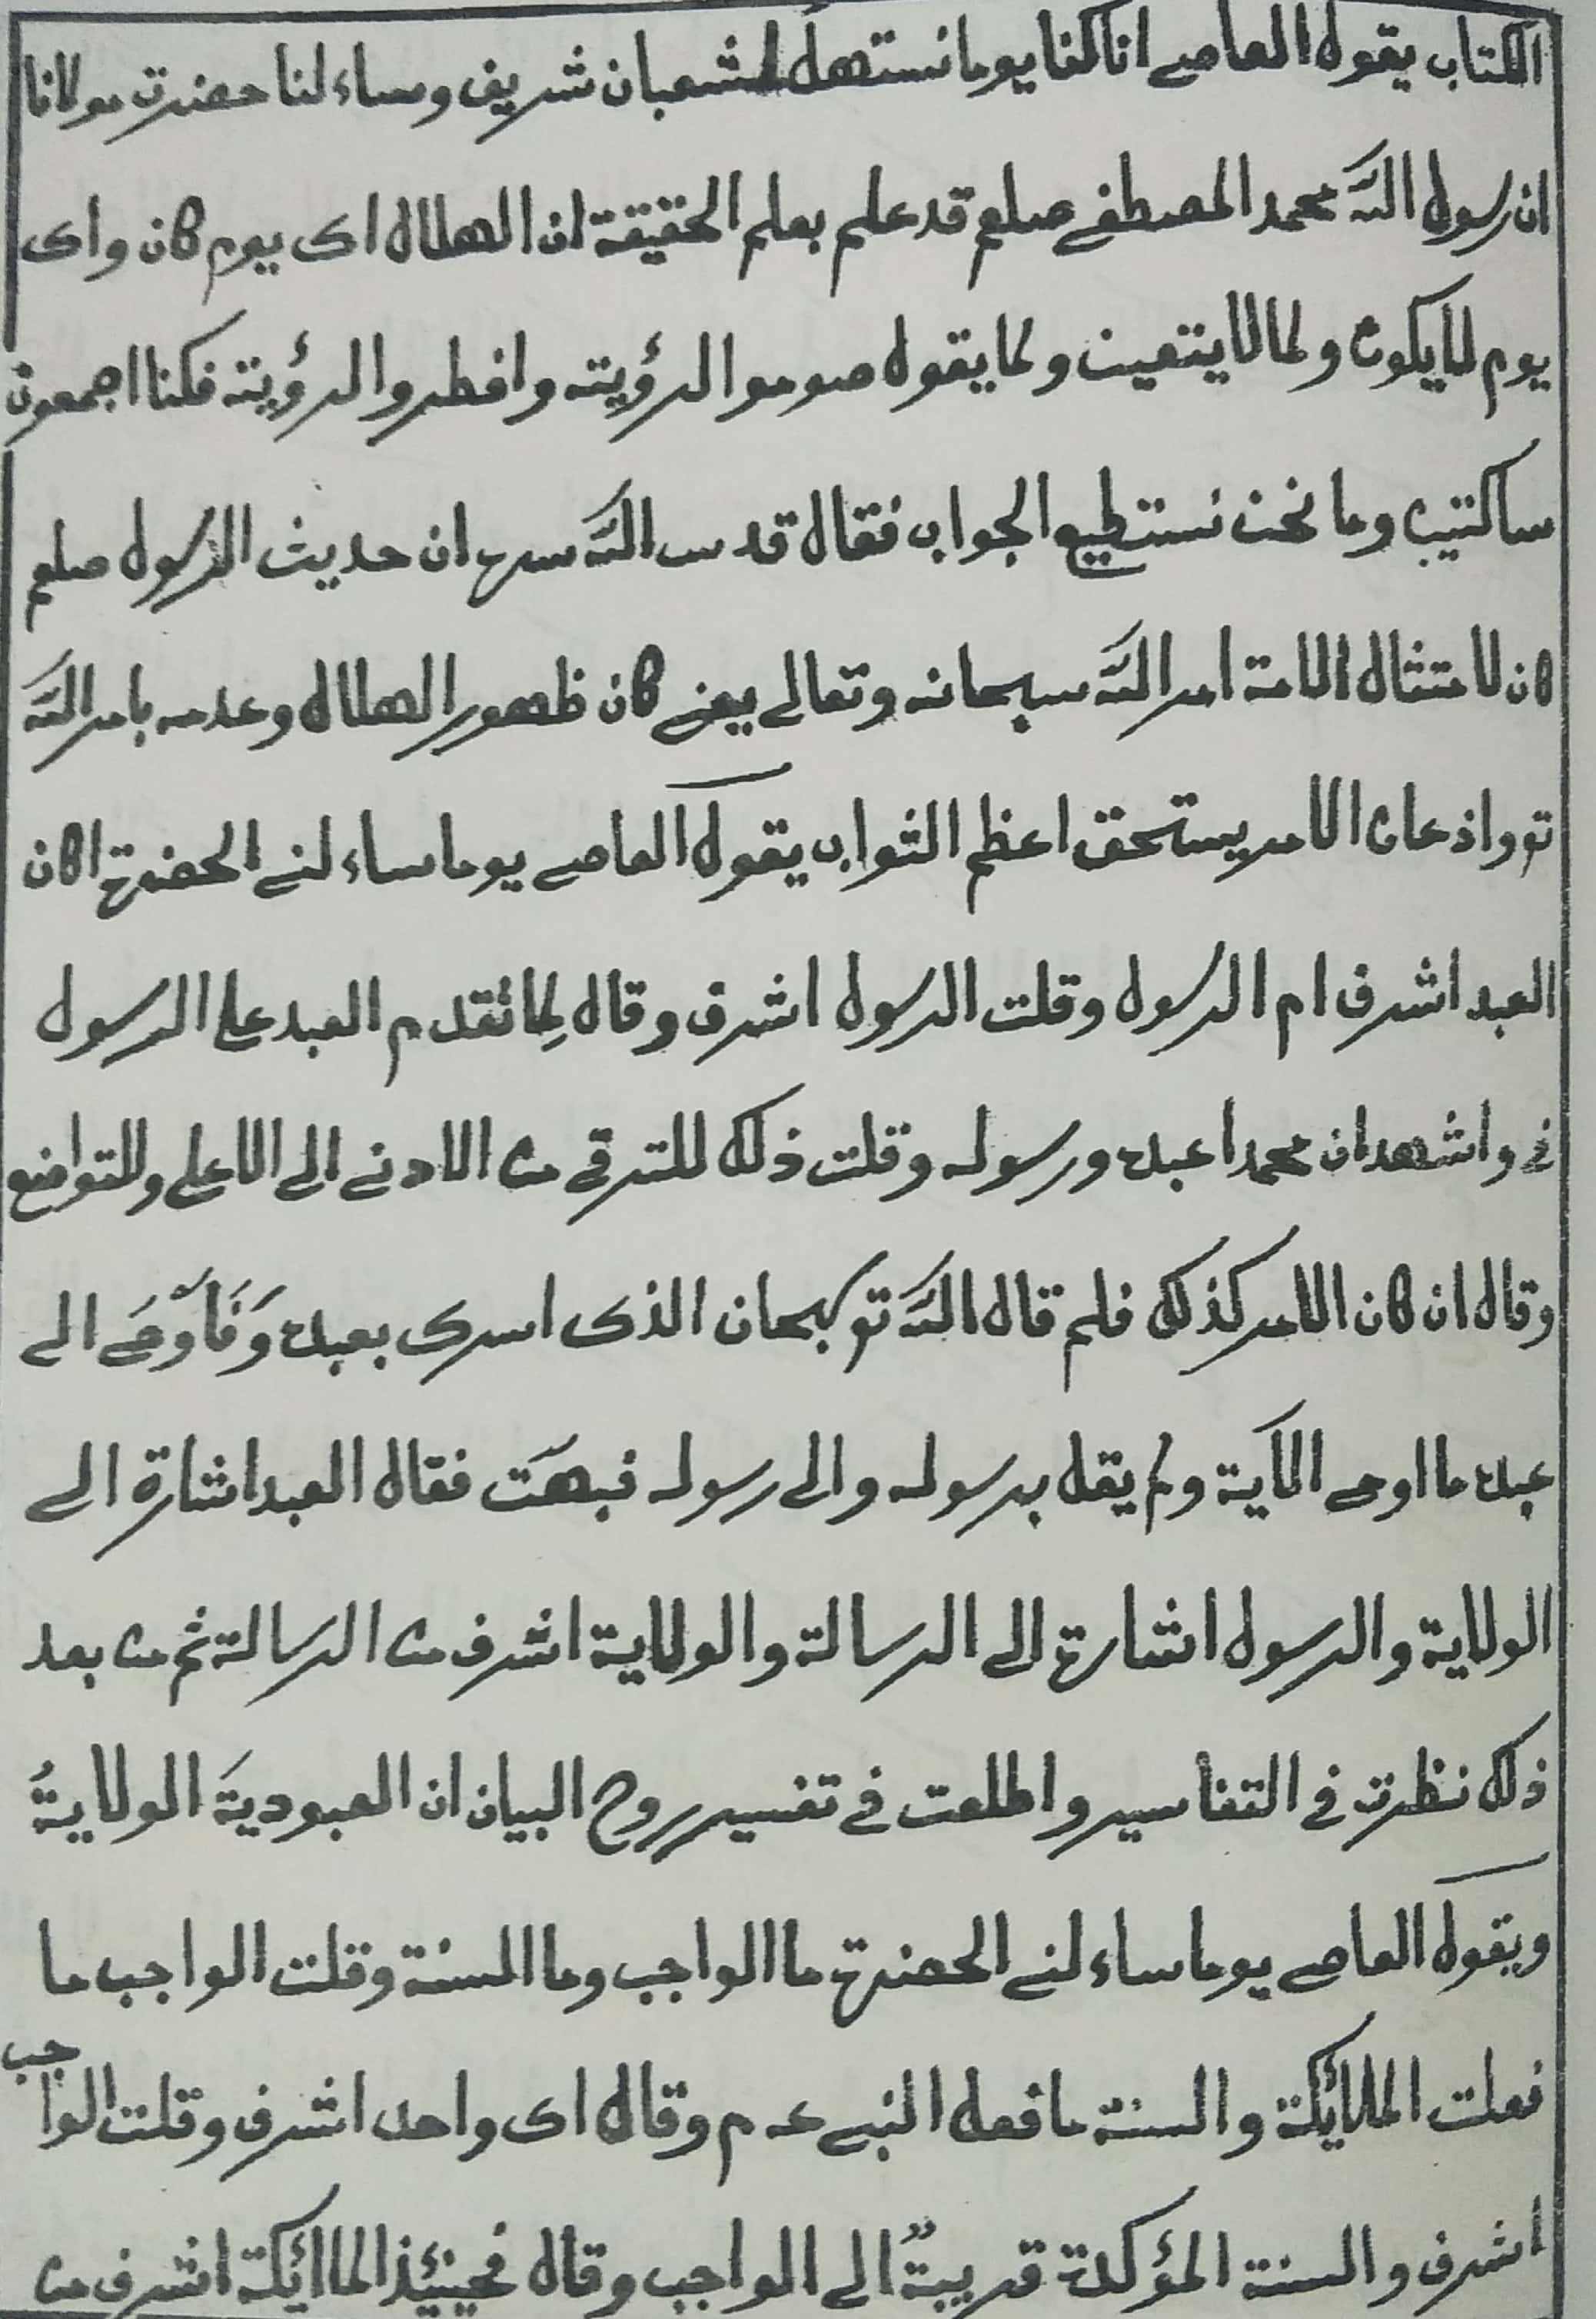 الكتاب يقول العاصے اناكنا يوما نستهلّ لشعبان شريف وساء لنا حضرت مولانا
ان رسول اللّه محمد المصطفے صلعم قد علم بعلم الحقيقة ان الهلال ای يوم كان وای
يوم لما يكون ولما لا يتعين ولما يقول صوموا الرؤيته وافطروا الرؤيته فكنا اجمعون
ساكتين وما نحن نستطيع الجواب فقال قدس اللّه سره ان حديث الرسول صلعم
كان لامتثال الامة امر اللّه سبحانه وتعالے يعنے كان ظهور الهلال وعدمه بامر اللّه
تع واذعان الامر يستحق اعظم الثواب يقول العاصے يوما ساء لنے الحضرة اكان
العبد اشرف ام الرسول وقلت الرسول اشرف وقال لِما تقدم العبد علے الرسول
فے واشهد ان محمدا عبده ورسوله وقلت ذلك للترقے من الادنے الے الاعلے وللتواضع
وقال ان كان الامر كذلك فلم قال اللّه تع سبحان الذی اسری بعبده وَفَاَوْحَے الے
عبده ما اوحے الآية ولم يقل برسوله والے رسوله فبهَت فقال العبد اشارة الے
الولاية والرسول اشارة الے الرسالة والولاية اشرف من الرسالة ثم من بعد
ذلك نظرت فے التفاسير واطلعت فے تفسير روح البيان ان العبوديةَ الولايةُ
ويقول العاصے يوما ساء لنے الحضرة ما الواجب وما السنة وقلت الواجب ما
فعلت الملائكة والسنة ما فعل النبے عہ م وقال ای واحد اشرف وقلت الواجب
اشرف والسنة المؤكدة قريبةٌ الے الواجب وقال فحينئذ الملائكة اشرف من